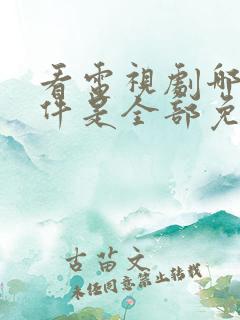 看電視劇哪
件是全部免
古苗文
未经同意禁止转载